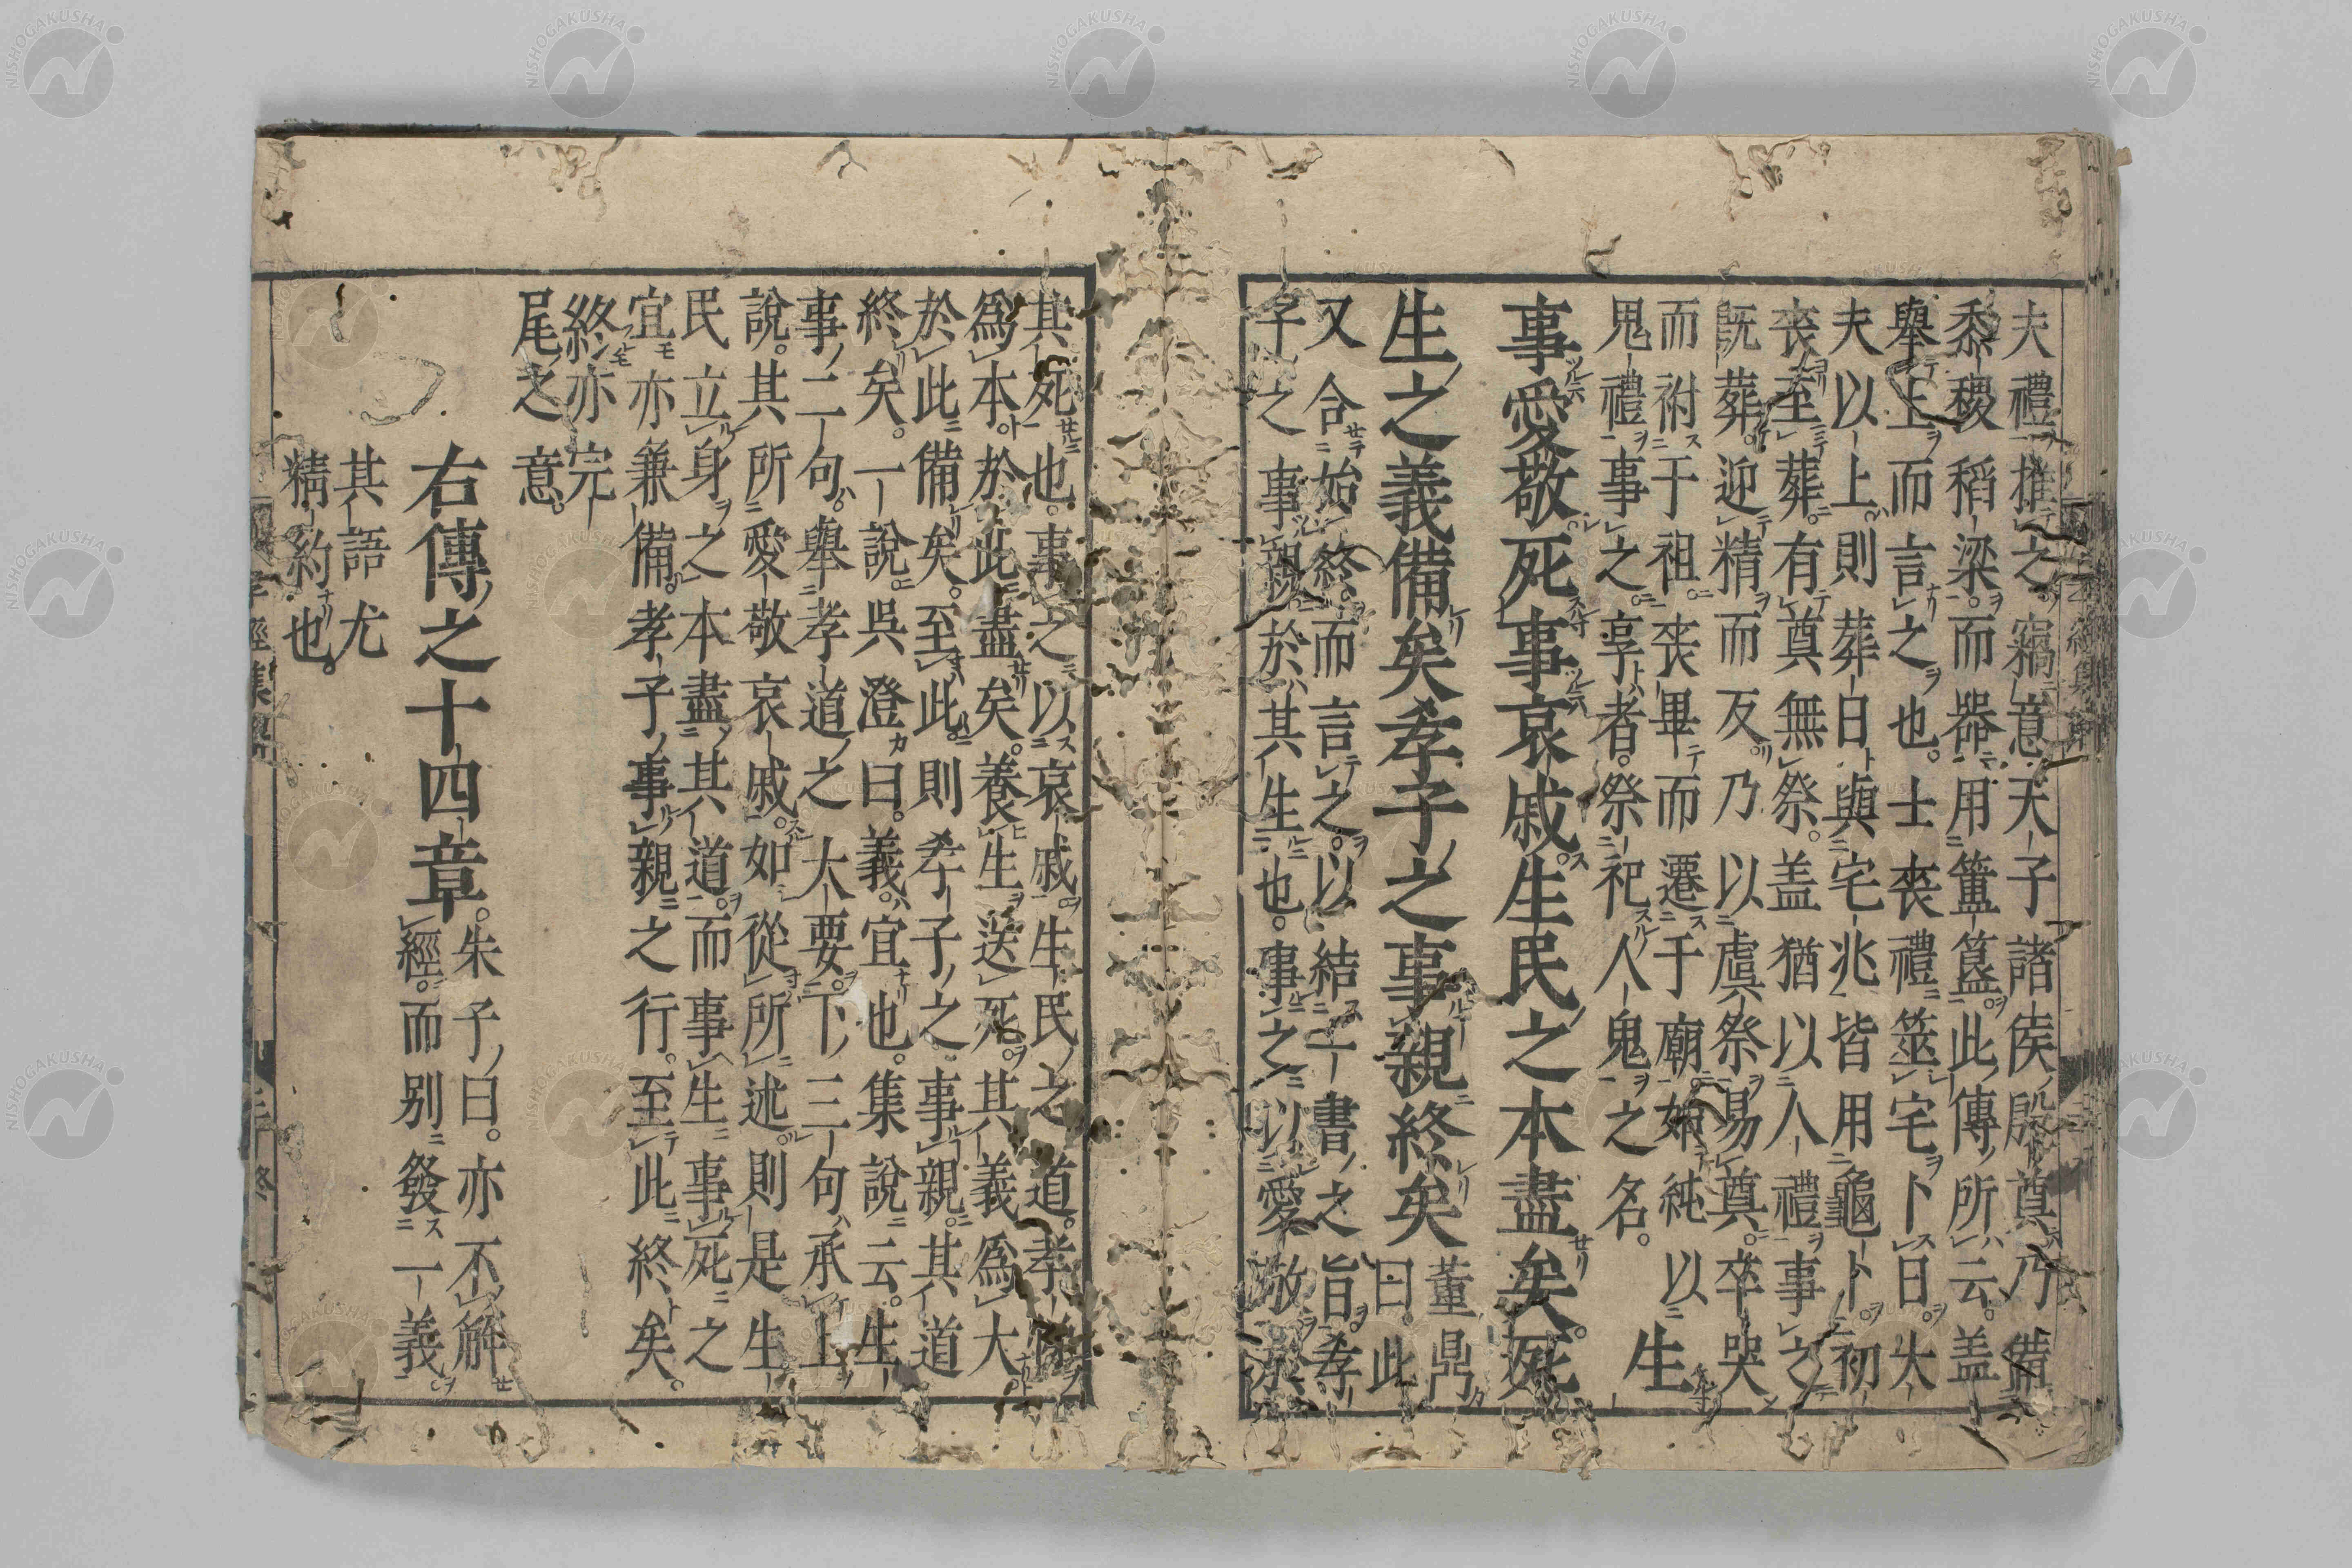 夫禮推之竊意天子諸侯殷奠乃備
黍稷稻梁。而器用簠簋。此傳所云。盖
舉上而言之也。士喪禮筮宅卜日。大
夫以上。則葬日與宅兆皆用龜卜。初
喪至葬。有奠無祭。盖猶以人禮事之
既葬。迎精而反。乃以虞祭易奠。卒哭
而祔于祖。喪畢而遷于廟。始純以
鬼禮事之。享者。祭祀人鬼之名。
生
事愛敬。死事哀戚。生民之本盡矣。死
生之義備矣孝子之事親終矣
董鼎
曰。此
又合始終。而言之。以結一書之旨。孝
子之事親於其生也。事之以愛敬。於
其死也。事之以哀戚生民之道。孝
爲本。於此盡矣。養生送死。其義爲大
於此備矣。至此。則孝子之事親。其道
終矣。一說。吳澄曰。義。宜也。集說云。生
事二句。舉孝道之大要。下三句承上
說。其所愛敬哀戚。如從所述。則是生
民立身之本盡其道。而事生事死之
宜亦兼備。孝子事親之行。至此終矣。
終亦完
尾之意。
右傳之十四章。
朱子曰。亦不解
經。而别發一義
其語尤
精約也。
孝經集